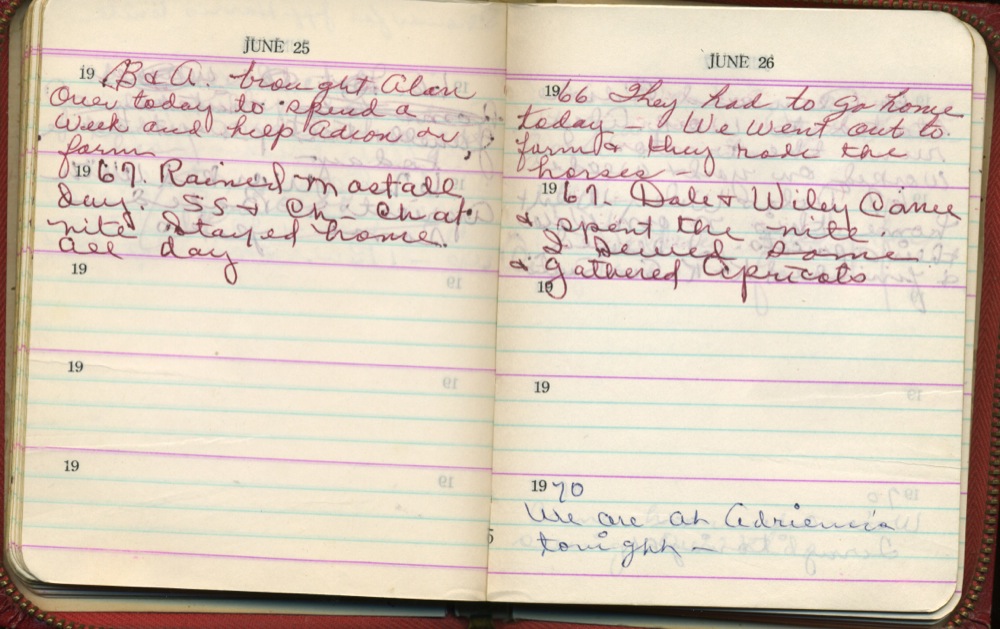 JUNE 25
19 B & A. brought Alan
over today to spend a
week and help Adron on
farm
1967. Rained most all
day. SS & Ch - Ch at
nite stayed home.
all day
19
19
19
JUNE 26
1966 They had to go home
today - We went out to
farm & they rode the
horses -
1967. Dale & Wiley Came
& spent the nite.
I sewed some
& gathered Apricots
19
19
1970
We are at
tonight -